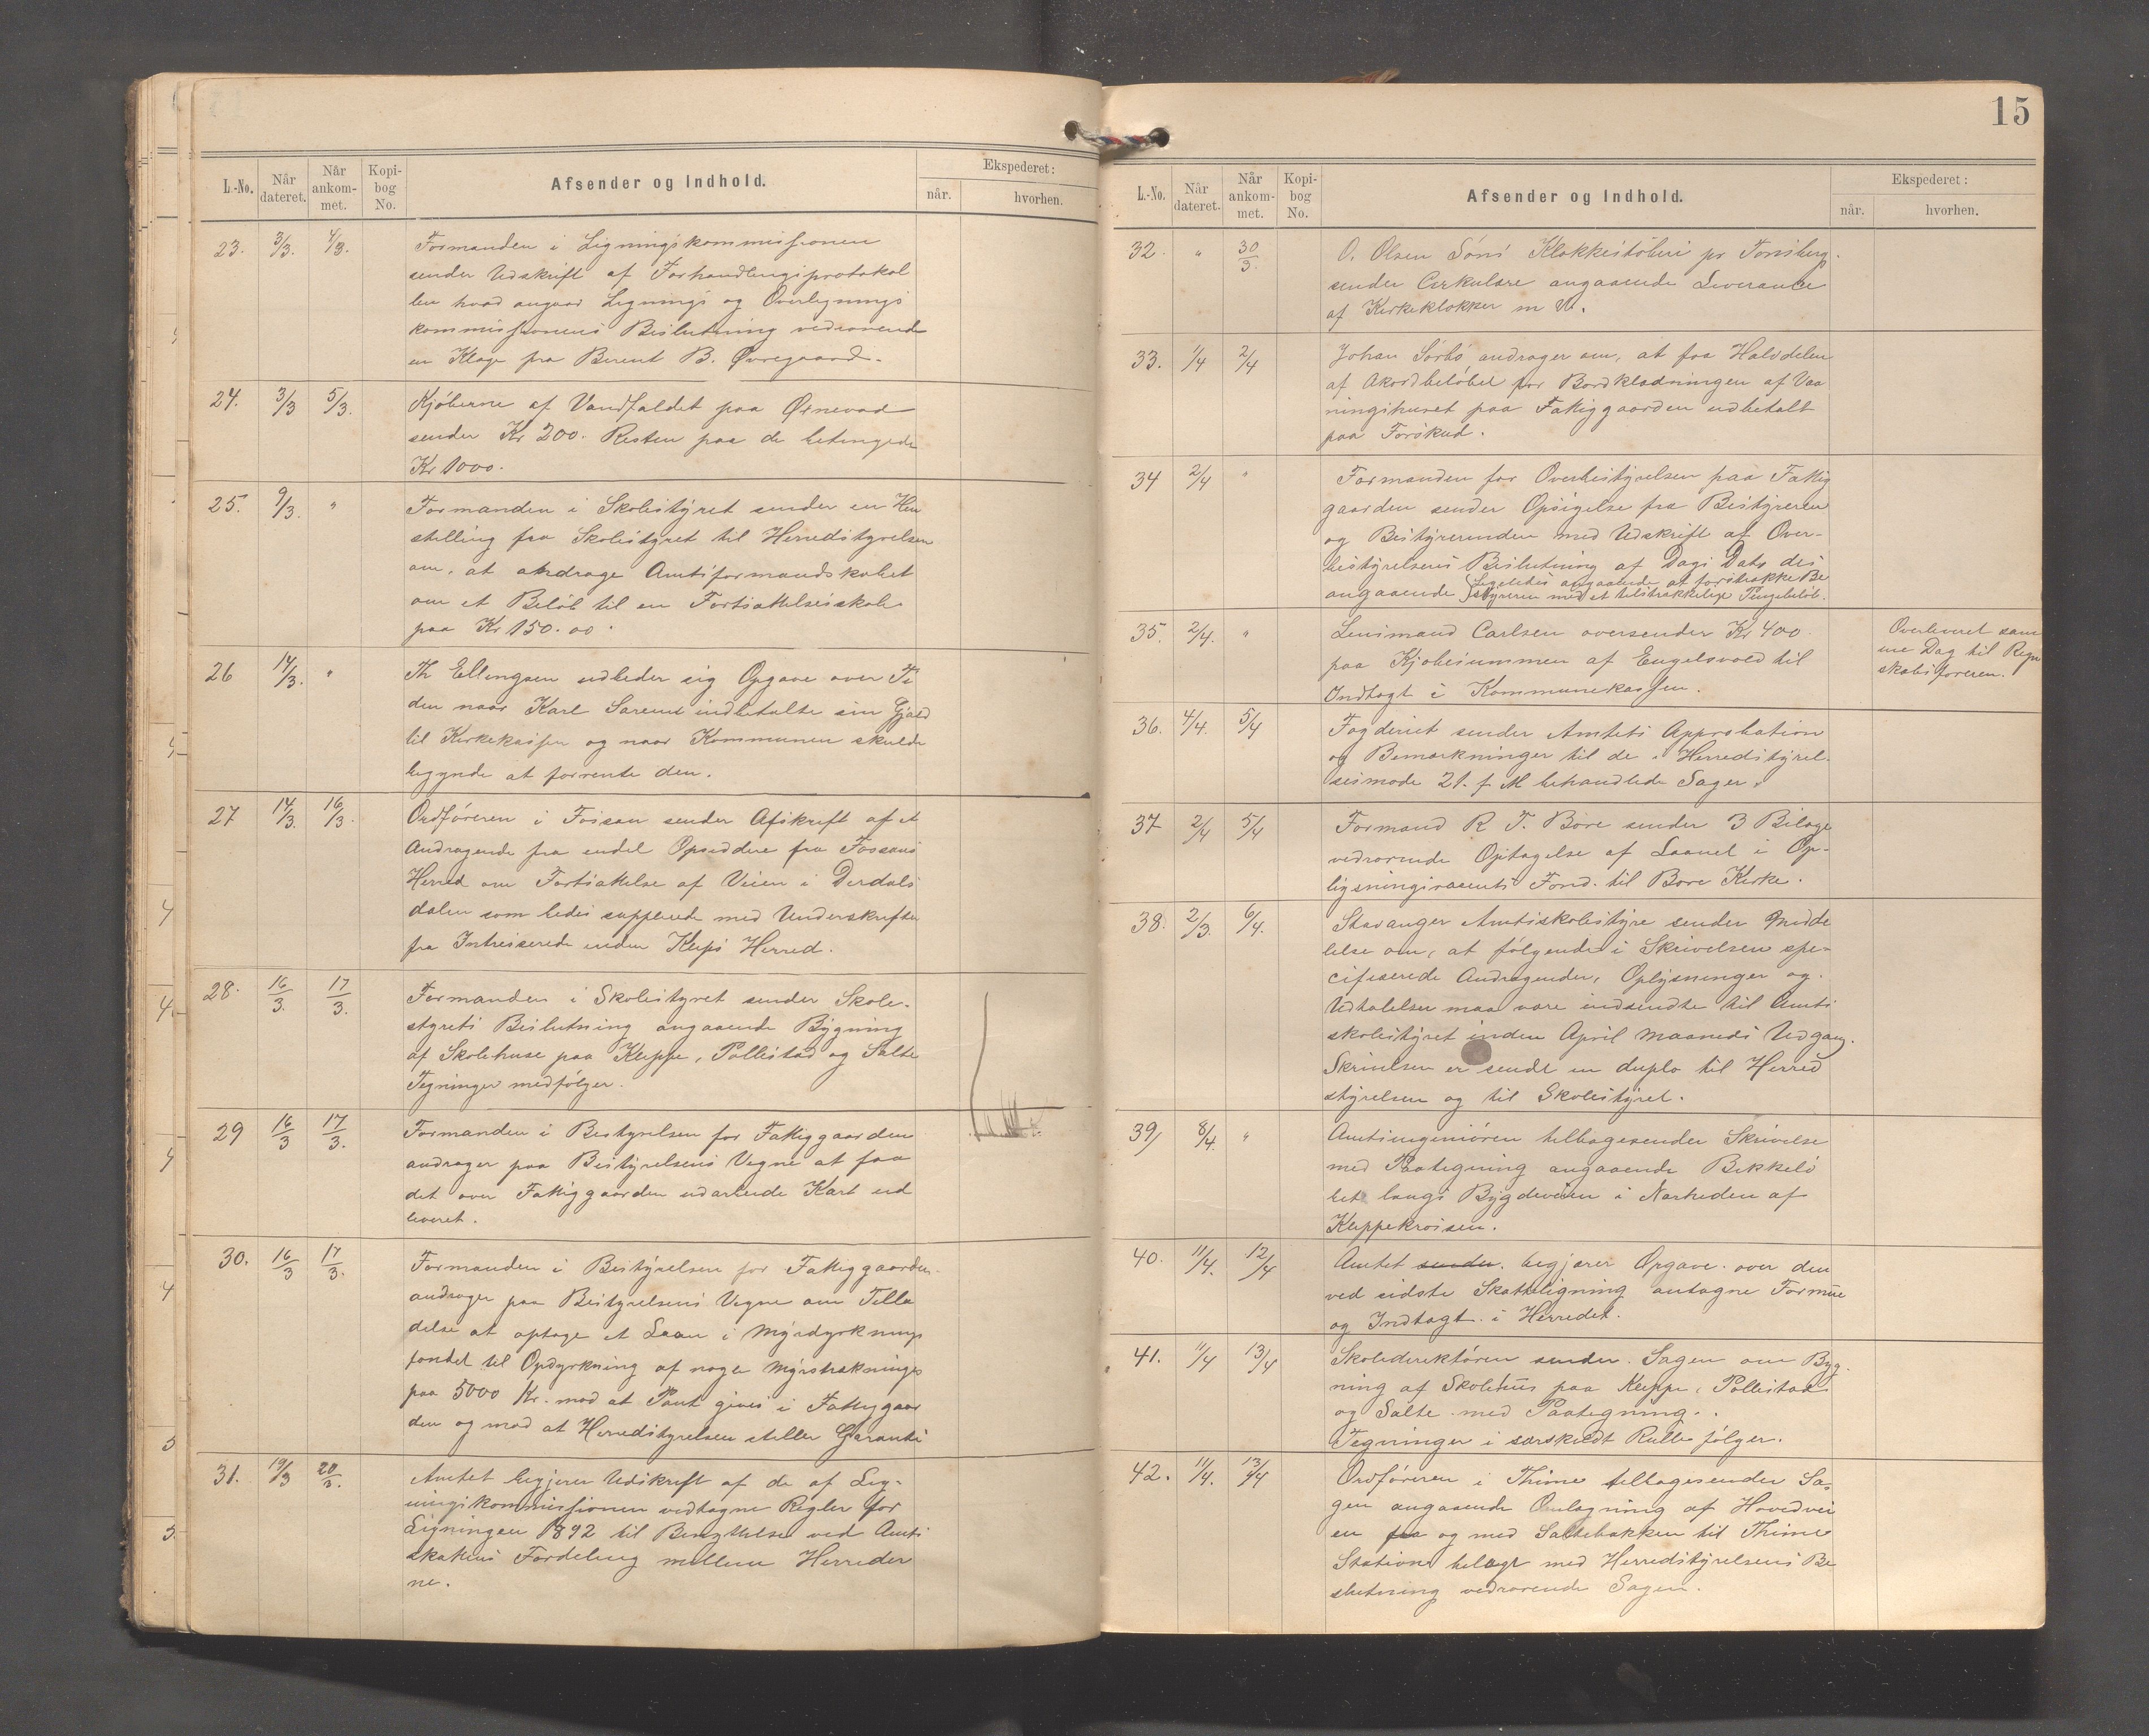 L.-No. Når dateret. Når ankom-met. Kopi-bog No. Afsender og Indhold. Ekspederet: når. hvorhen.
23. 3/3. 4/3. Formanden i Ligningskommissionen
sender Udskrift af Forhandlingsprotokol
len hvad angaar Lignings og Overlignings
kommissionens Beslutning vedrørende
en Klage fra Berent B. Øvregaard.
24. 3/3 5/3. Kjøberne af Vandfaldet paa Ørnevad
sender Kr 200. Resten paa de betingede
Kr 1000.
25. 9/3. " Formanden i Skolestyret sender en Hen
stilling fra Skolestyret til Herredstyrelsen
om, at andrage Amtsformandskabet
om et Beløb til en Fortsættelsesskole
paa Kr 150.00.
26 14/3. " Th Ellingsen udbeder sig Opgave over Ti
den naar Karl Sarend indbetalte sin Gjæld
til Kirkekassen og naar Kommunen skulde
begynde at forrente den.
27 14/3. 16/3. Ordføreren i Fossan sender Afskrift af et
Andragende fra endel Opsiddere fra Fossans
Herred om Fortsættelse af Veien i Dirdals
dalen som bedes supplerede med Underskrifter
fra Intresserede inden Kleps Herred.
28. 16/3. 17/3. Formanden i Skolestyret sender Skole-
styrets Beslutning angaaende Bygning
af Skolehuse paa Kleppe, Pollestad og Salte
Tegninger medfølger.
29 16/3 17/3. Formanden i Bestyrelsen for Fattiggaarden
andrager paa Bestyrelsens Vegne at faa
det over Fattiggaarden udarbeide Kart ud
leveret.
30. 16/3 17/3. Formanden i Bestyrelsen for Fattiggaarden
andrager paa Bestyrelsens Vegne om Tilla
delse at optage et Laan i Myrdyrknings
fondet til Opdyrkning af nogle Myrstrækninger
paa 5000 Kr. mod at Pant gives i Fattiggaar
den og mod at Herredstyrelsen stiller Garanti
31. 19/3 20/3. Amtet begjerer Udskrift af de af Lig-
ningskommissionen vedtagne Regler for
Ligningen 1892 til Benyttelse ved Amts
skattens Fordeling mellem Herreder
ne.
15
L.-No. Når dateret. Når ankom-met. Kopi-bog No. Afsender og Indhold. Ekspederet: når. hvorhen.
32. " 30/3. O. Olsen Søns Klokkestøberi pr Tønsberg.
sender Cirkulære angaaende Leverance
af Kirkeklokker m V.
33. 1/4 2/4 Johan Sørbø andrager om, at faa Halvdelen
af Akordbeløbet for Bordklædningen af Vaa
ningshuset paa Fattiggaarden udbetalt
paa Forskud.
34 2/4 " Formanden for Overbestyrelsen paa Fattig
gaarden sender Opsigelse fra Bestyreren
og Bestyrerinden med Udskrift af Over-
bestyrelsens Beslutning af Dags Dato des
angaaende Ligeledes angaaende at forstrække Be
styreren med et tilstrækkeligt Pengebeløb.
35. 2/4. " Lensmand Carlsen oversender Kr 400
paa Kjøbesummen af Engelsvold til
Indtægt i Kommunekassen.
Overleveret sam
me Dag til Regn
skabsføreren.
36. 4/4. 5/4 Fogderiet sender Amtets Approbation
og Bemærkninger til de i Herredstyrel-
sesmøde 21. f M behandlede Sager.
37 2/4 5/4 Formand R T. Bore sender 3 Bilage
vedrørende Optagelse af Laanet i Op-
lysningsvæsents Fond. til Bore Kirke.
38. 2/3. 6/4. Stavanger Amtsskolestyre sender Midde
lelse om, at følgende i Skrivelsen spe-
cificerede Andragender, Oplysninger og
Udtalelser maa være indsendte til Amts
skolestyret inden April Maaneds Udgang.
Skrivelsen er sendt en duplo til Herred
styrelsen og til Skolestyret.
39, 8/4. " Amtsingeniøren tilbagesender Skrivelse
med Paategning angaaende Bekkelø
bet langs Bygdeveien i Nærheden af
Kleppekrossen.
40. 11/4. 12/4 Amtet sender. begjærer Opgave over den
ved sidste Skatteligning antagne Formue
og Indtægt i Herredet.
41. 11/4 13/4 Skoledirektøren sender Sagen om Byg-
ning af Skolehus paa Kleppe, Pollestad
og Salte med Paategning.
Tegninger i særskildt Rulle følger.
42. 11/4. 13/4 Ordføreren i Thime tilbagesender Sa-
gen angaaende Omlægning af Hovedvei
en fra og med Saltebakken til Thime
Station bilagt med Herredstyrelsens Be
slutning vedrørende Sagen.